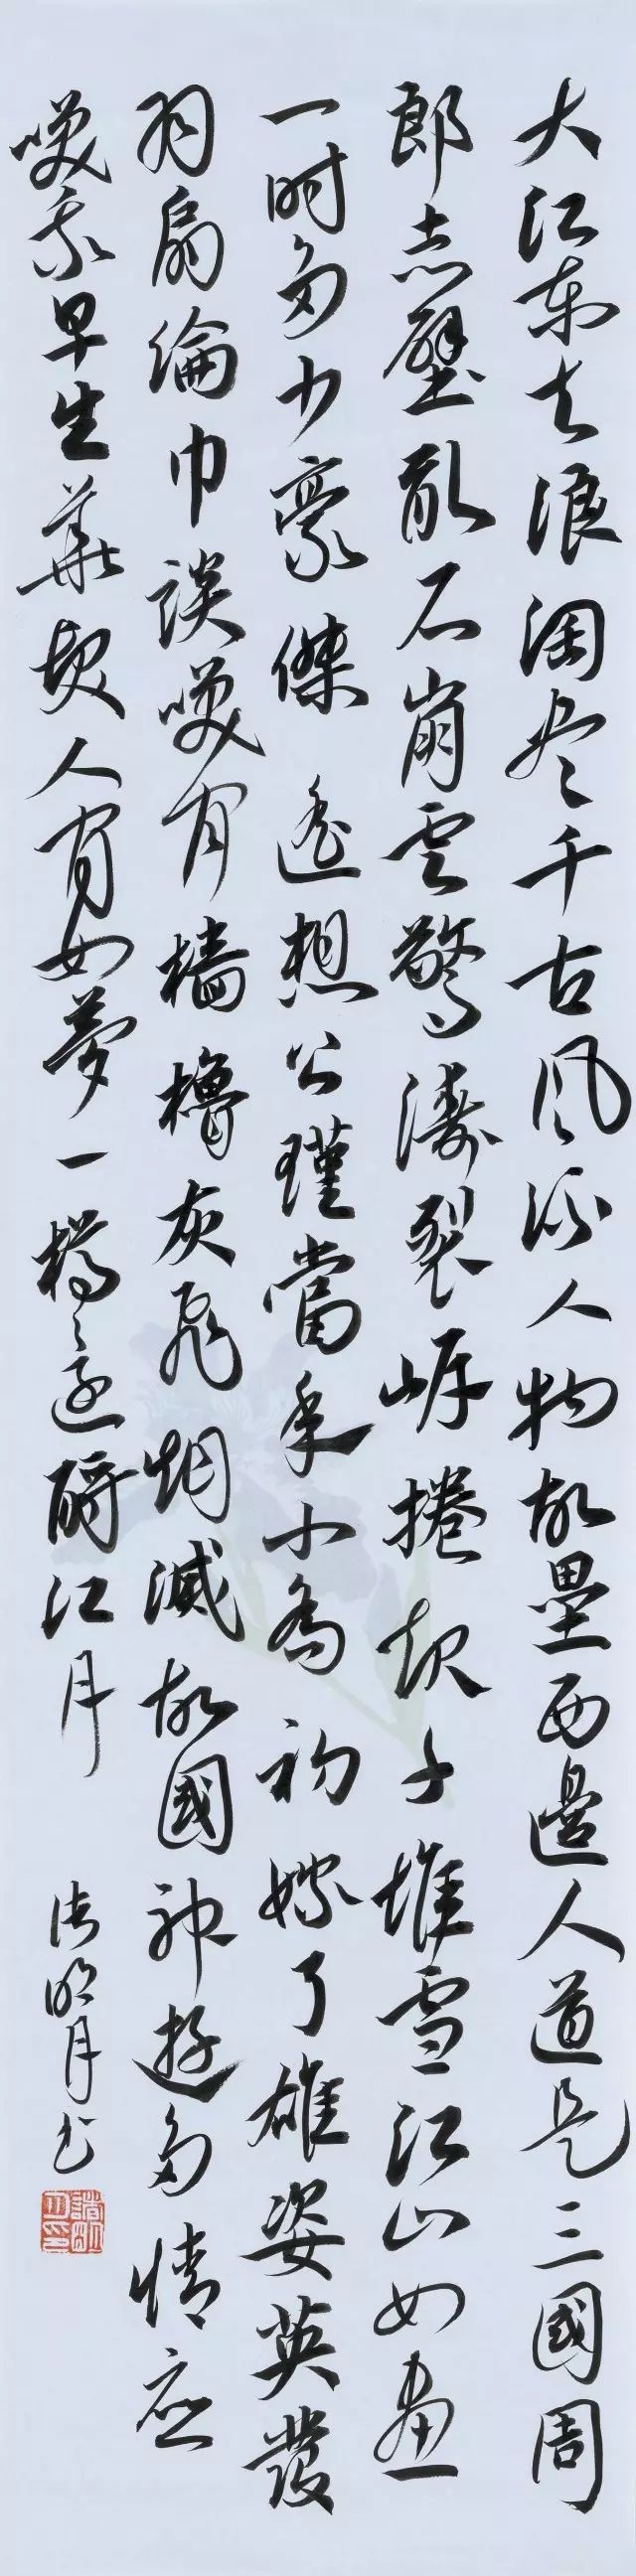 大江東去浪淘盡千古風流人物故壘西邊人道是三國周
郎赤壁亂石崩雲驚濤裂岸捲起千堆雪江山如畫
一時多少豪傑 遙想公瑾當年小喬初嫁了雄姿英發
羽扇綸巾談咲間檣櫓灰飛烟滅故國神遊多情應
咲我早生華髮人間如夢一樽還酹江月
諸明月書
諸明月印